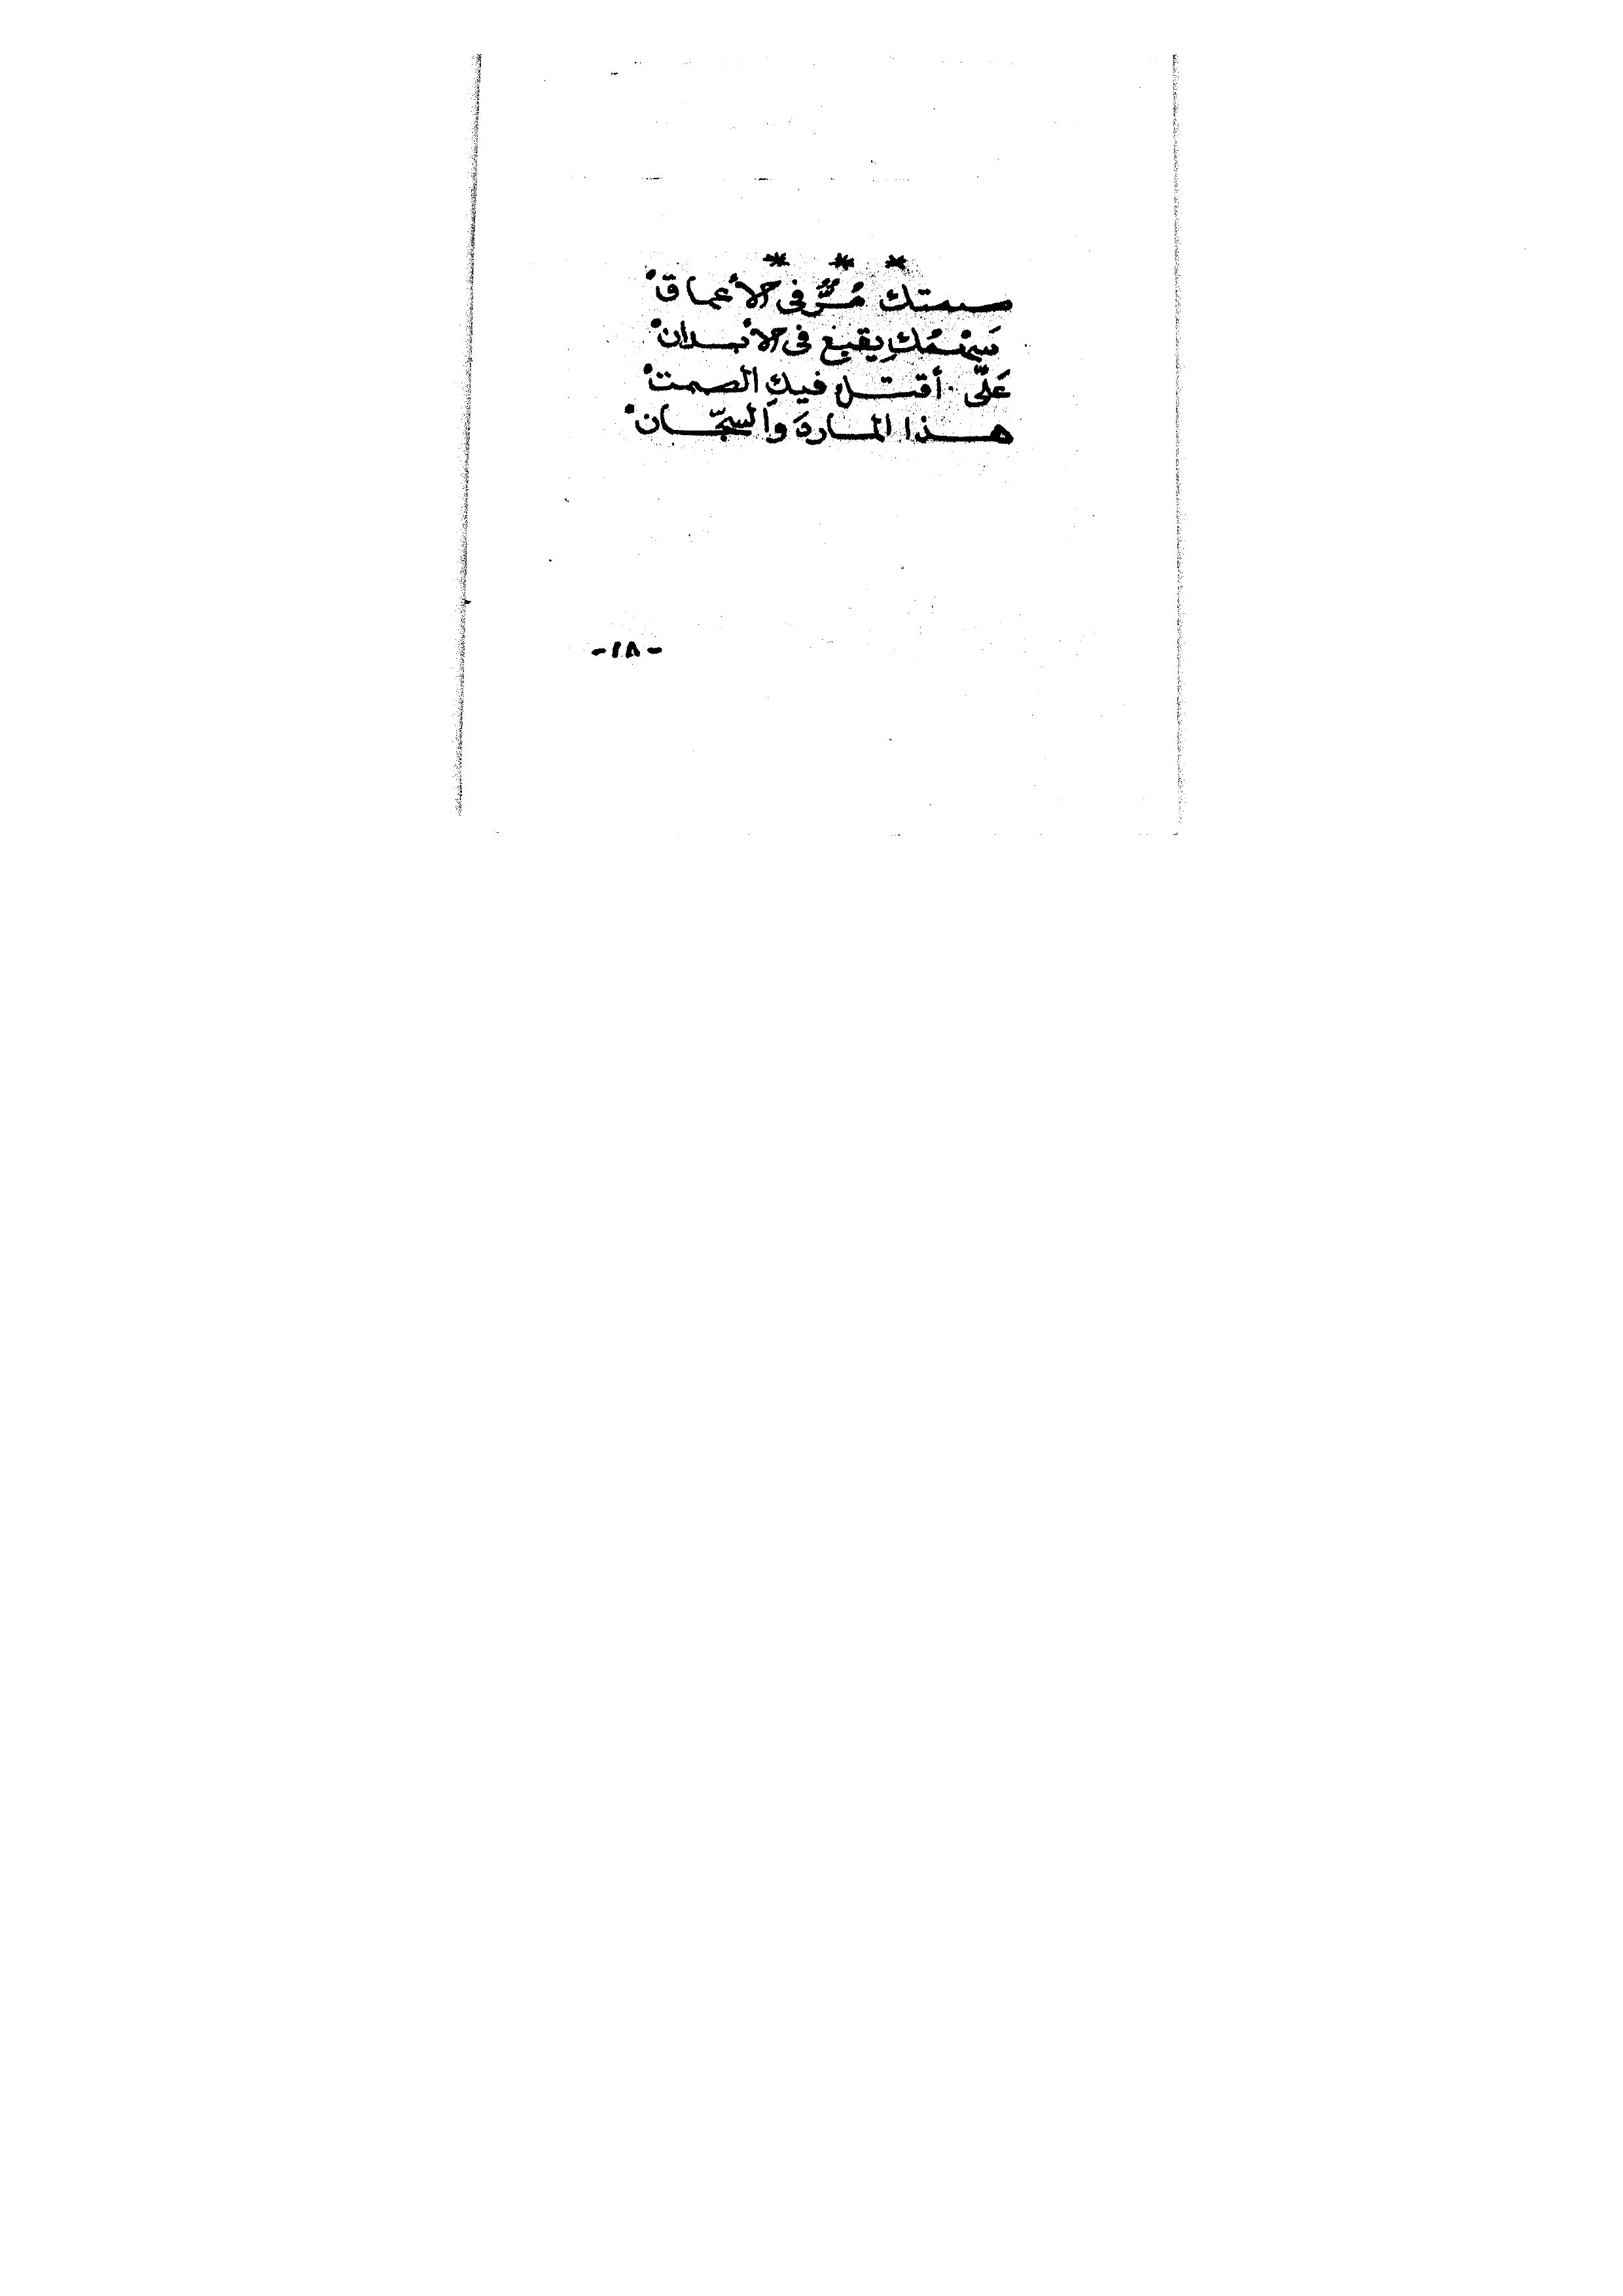 * * *
صمتك مُرٌّ في الأعماقْ
يقبع في الأبدانْ
عَلّي أقتل فيكِ الصمتْ
هذا الماردَ والسجّانْ
-١٨-